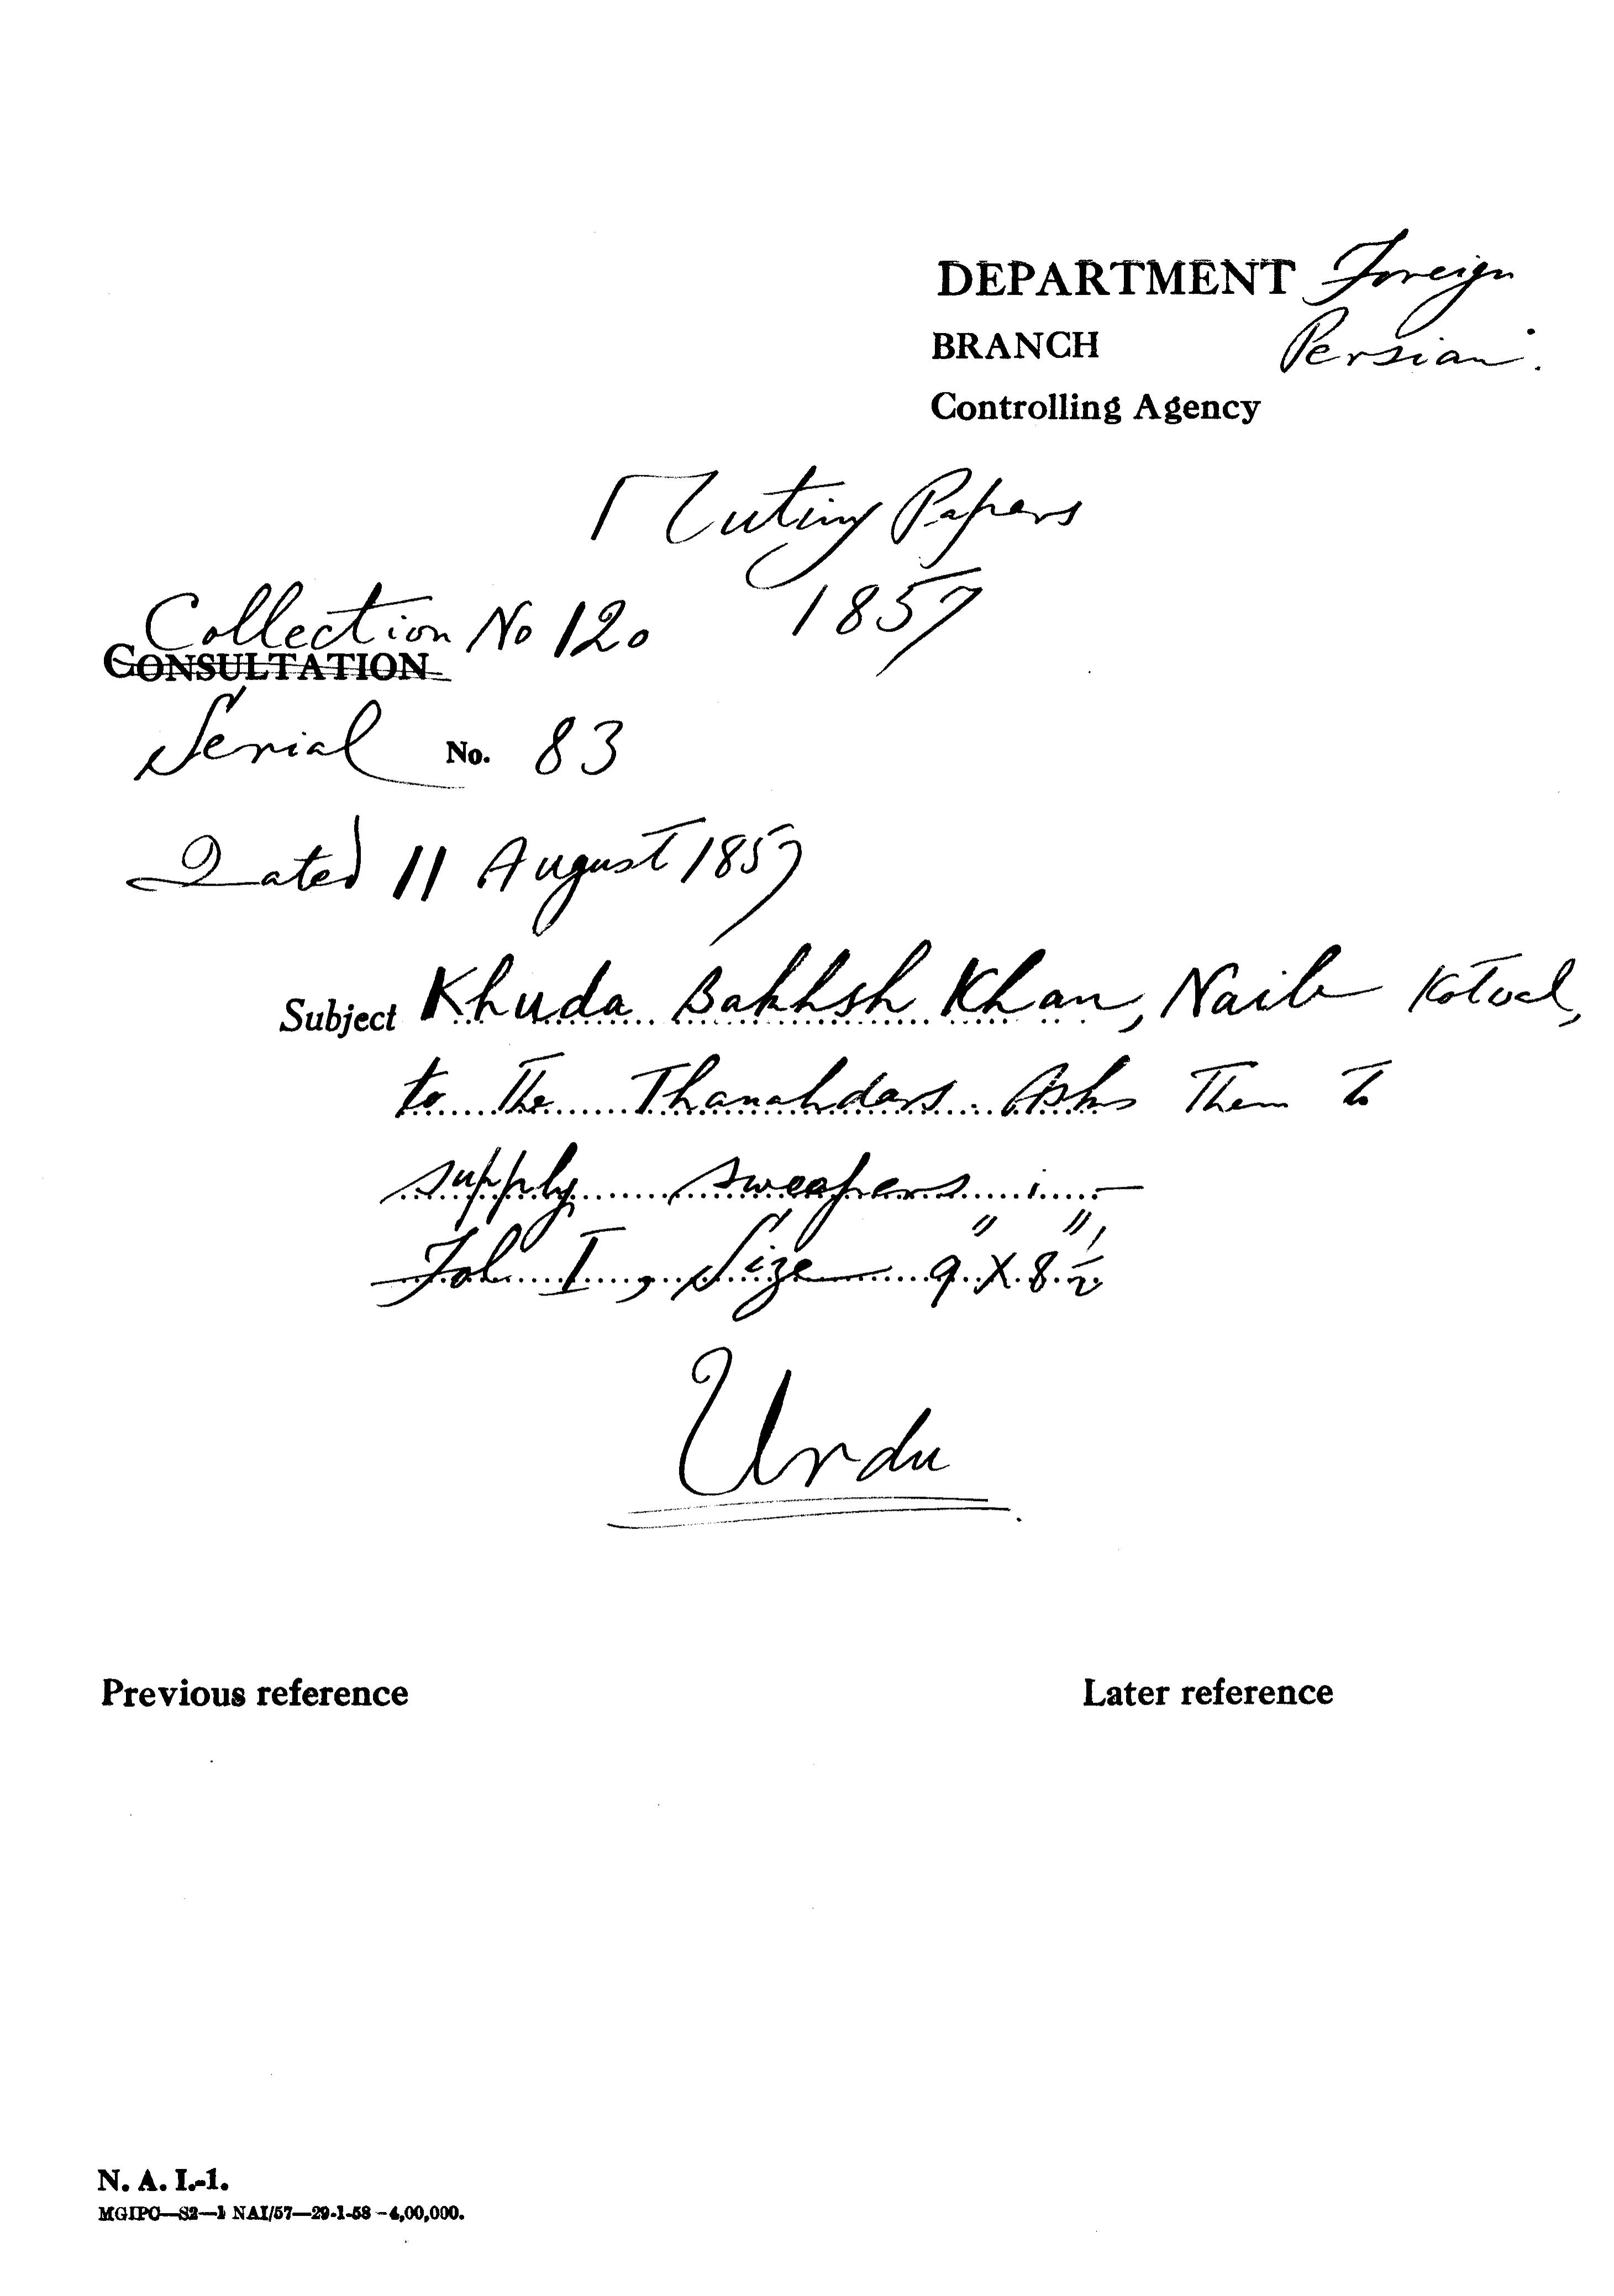 DEPARTMENT Foreign
BRANCH Persian.
Controlling Agency
Mutiny Papers
1857
Collection No 120
CONSULTATION
Serial No. 83
Dated 11 August 1857
Subject Khuda Bakhsh Khan, Naib Kotwal,
to the Thanahdars. Asks Them To
supply sweepers :—
Fol I, Size 9" X 8½"
Urdu
Previous reference
Later reference
N. A. I.-1.
MGIPC—S2—1 NAI/57—29-1-58—4,00,000.